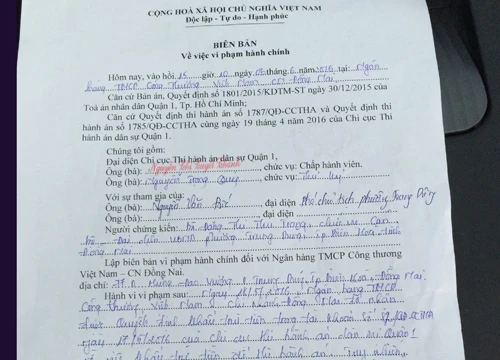 CỘNG HOÀ XÃ HỘI CHỦ NGHĨA VIỆT NAM
Độc lập - Tự do - Hạnh phúc
BIÊN BẢN
Về việc vi phạm hành chính
Hôm nay, vào hồi 15 giờ 10 ngày 08 tháng 6 năm 2016 tại: Ngân
hàng TMCP Công Thương Việt Nam CN Đồng Nai
Căn cứ Bản án, Quyết định số 1801/2015/KDTM-ST ngày 30/12/2015 của
Toà án nhân dân Quận 1, Tp. Hồ Chí Minh;
Căn cứ Quyết định thi hành án số 1787/QĐ-CCTHA và Quyết định thi
hành án số 1785/QĐ-CCTHA cùng ngày 19 tháng 4 năm 2016 của Chi cục Thi
hành án dân sự Quận 1.
Chúng tôi gồm:
Đại diện Chi cục Thi hành án dân sự Quận 1,
Ông (bà): Nguyễn Thị Tuyết, chức vụ: Chấp hành viên.
Ông (bà): Nguyễn Trọng, chức vụ: Thư ký
Với sự tham gia của:
Ông (bà): Nguyễn Văn đại diện Phó chủ tịch phường Trung Dũng
Ông (bà): đại diện
Người chứng kiến: bà Đồng Thị Thu Trang, chức vụ Cán
bộ - Đại diện UBND phường Trung Dũng, Tp Biên Hoà, tỉnh
Đồng Nai
Lập biên bản vi phạm hành chính đối với Ngân hàng TMCP Công thương
Việt Nam – CN Đồng Nai.
địa chỉ: Hùng Vương, P. Trung Dũng, Tp Biên Hoà, Đồng Nai
Hành vi vi phạm sau: Ngày 2016, Ngân hàng TMCP
Công Thương Việt Nam Chi nhánh Đồng Nai đã nhận
được Quyết định khấu trừ tiền trong tài khoản số
ngày 2016 của Chi cục thi hành án dân sự Quận 1
về việc khấu trừ tiền để thi hành án